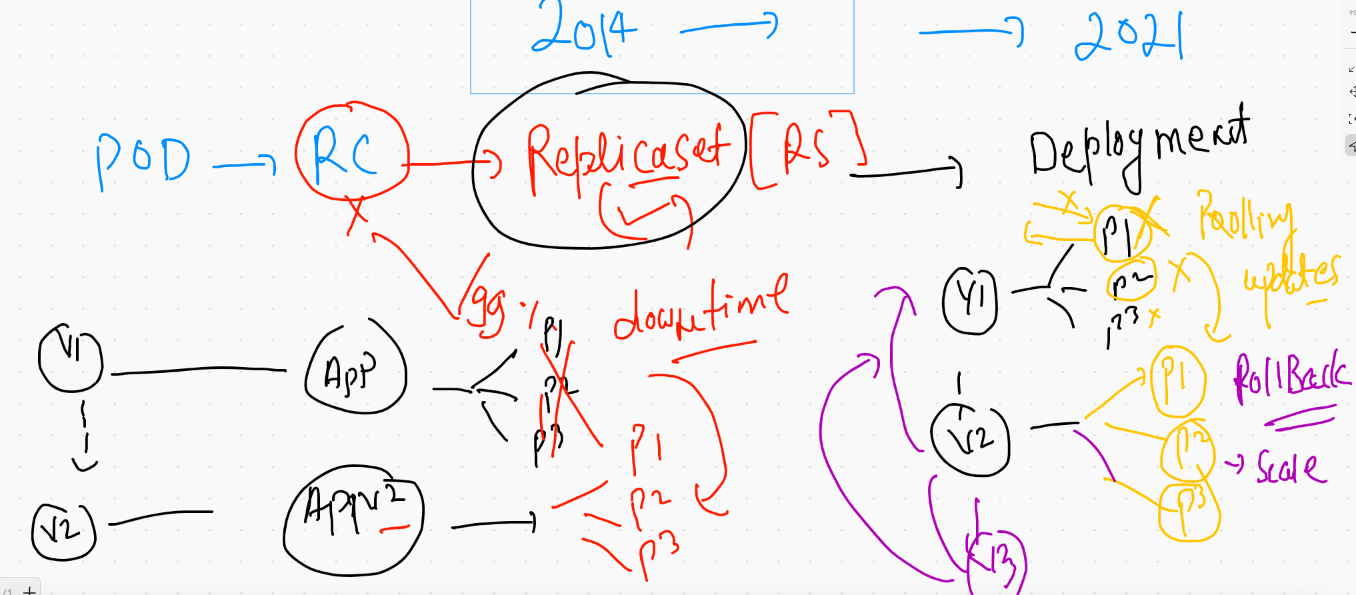 2014 → → 2021
POD → RC → Replicaset [RS] → Deployment
X
99%
downtime
V1 App P1
P2
P3
V2 Appv2 → P1
P2
P3
V1 P1
P2
P3
X X X X
Rolling
updates
V2 P1
P2
P3
RollBack
→ Scale
V3